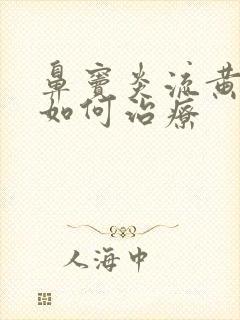 鼻窦炎流黄
如何治疗
人海中